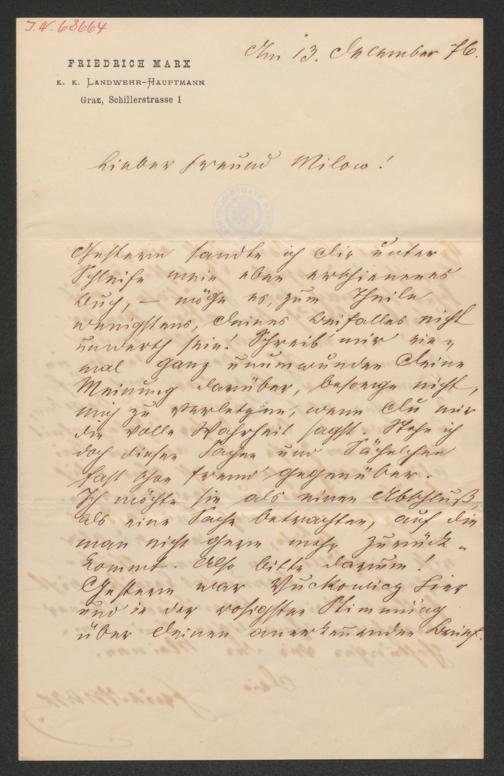 I.N. 68664
FRIEDRICH MARX
K. K. LANDWEHR-HAUPTMANN
Graz, Schillerstrasse 1
Am 13. Dezember 76.
Lieber Freund Milow!
Gestern sandte ich Dir unter
Schleife mein eben erschienenes
Buch, — möge es, zum Theile
wenigstens, Deines Beifalles nicht
unwerth sein! Schreib' mir ein-
mal ganz unumwunden Deine
Meinung darüber, besorge nicht,
mich zu verletzen, wenn Du mir
die volle Wahrheit sagst. Stehe ich
doch dieser Sache und
fast schon fremd gegenüber.
Ich möchte sie als einen Abschluß,
als eine Sache betrachten, auf die
man nicht gern mehr zurück-
kommt. Also bitte darum.
Gestern war Vuckovicz hier
und in der rosigsten Stimmung
über Deinen anerkennenden Brief.